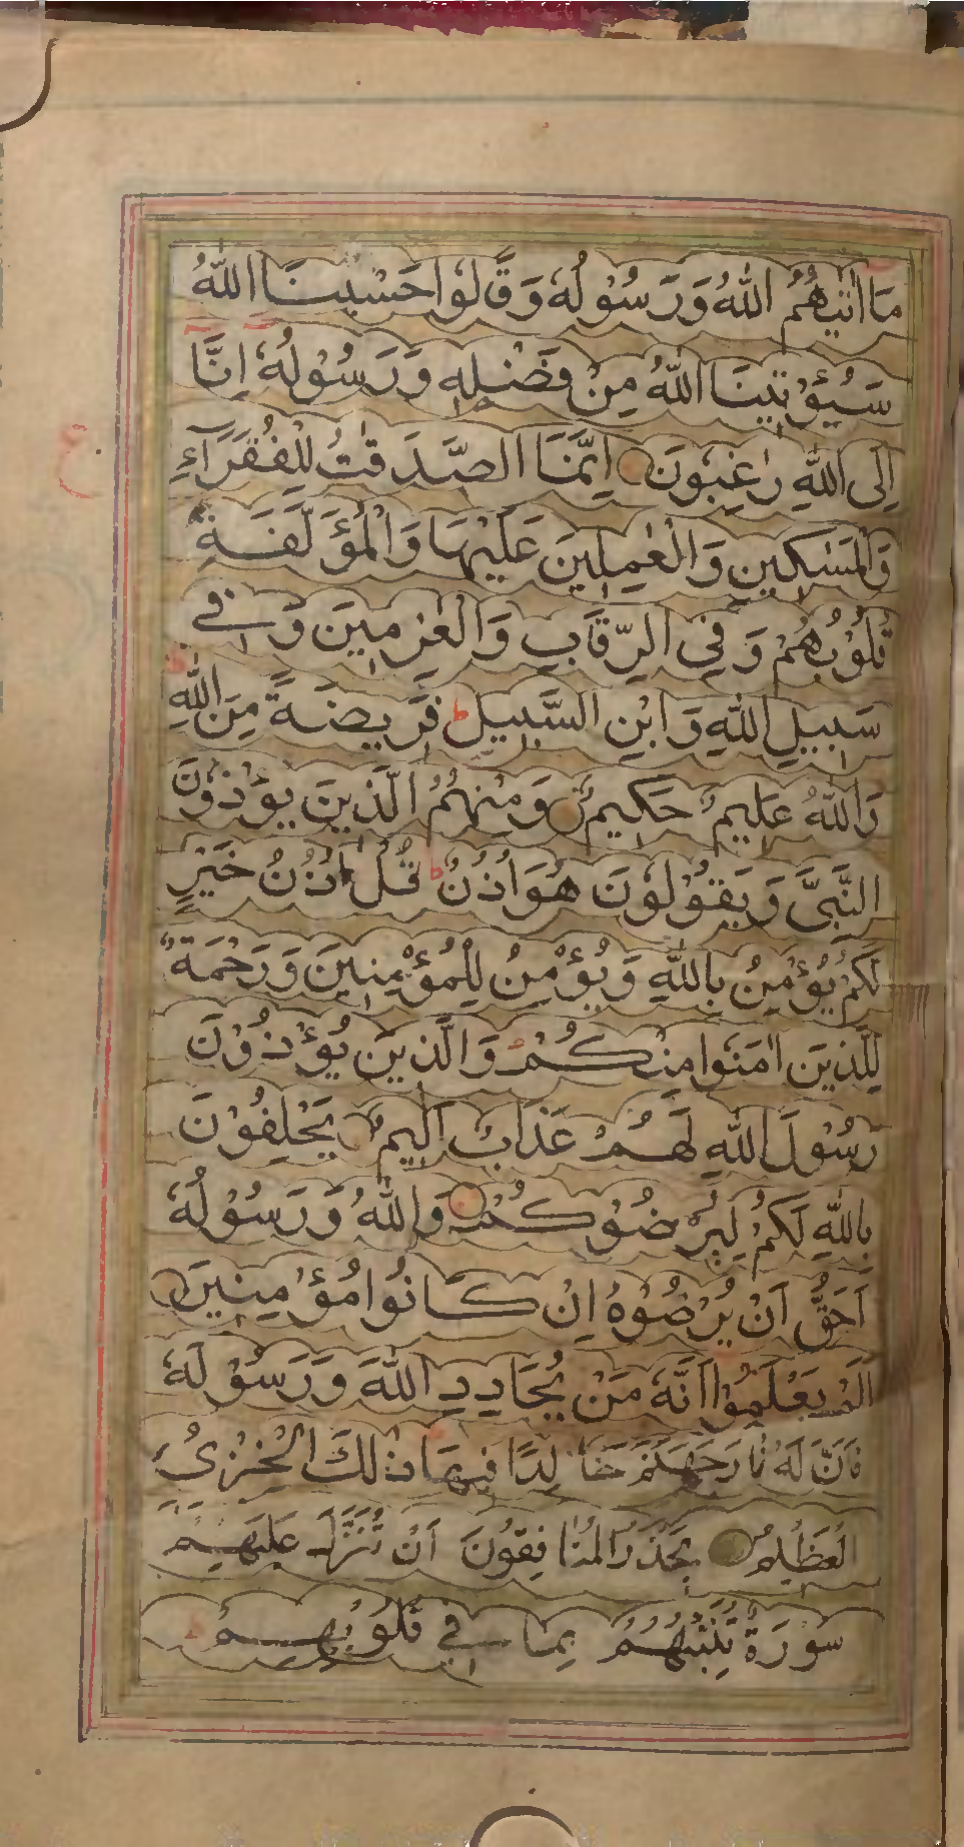 مَا اٰتٰىهُمُ اللّٰهُ وَرَسُوْلُهٗ وَقَالُوْا حَسْبُنَا اللّٰهُ
سَيُؤْتِيْنَا اللّٰهُ مِنْ فَضْلِهٖ وَرَسُوْلُهٗ اِنَّا
اِلَى اللّٰهِ رٰغِبُوْنَ اِنَّمَا الصَّدَقٰتُ لِلْفُقَرَآءِ
وَالْمَسٰكِيْنِ وَالْعٰمِلِيْنَ عَلَيْهَا وَالْمُؤَلَّفَةِ
قُلُوْبُهُمْ وَ فِي الرِّقَابِ وَالْغٰرِمِيْنَ وَ فِي
سَبِيْلِ اللّٰهِ وَ ابْنِ السَّبِيْلِ ط فَرِيْضَةً مِنَ اللّٰهِ
وَاللّٰهُ عَلِيْمٌ حَكِيْمٌ وَمِنْهُمُ الَّذِيْنَ يُؤْذُوْنَ
النَّبِىَّ وَ يَقُوْلُوْنَ هُوَ اُذُنٌ ط قُلْ اُذُنُ خَيْرٍ
لَكُمْ يُؤْمِنُ بِاللّٰهِ وَ يُؤْمِنُ لِلْمُؤْمِنِيْنَ وَ رَحْمَةٌ
لِلَّذِيْنَ اٰمَنُوْا مِنْكُمْ وَ الَّذِيْنَ يُؤْذُوْنَ
رَسُوْلَ اللّٰهِ لَهُمْ عَذَابٌ اَلِيْمٌ يَحْلِفُوْنَ
بِاللّٰهِ لَكُمْ لِيُرْضُوْكُمْ وَاللّٰهُ وَ رَسُوْلُهٗ
اَحَقُّ اَنْ يُرْضُوْهُ اِنْ كَانُوْا مُؤْمِنِيْنَ
اَلَمْ يَعْلَمُوْا اَنَّهٗ مَنْ يُحَادِدِ اللّٰهَ وَ رَسُوْلَهٗ
فَاَنَّ لَهُ نَارَ جَهَنَّمَ خَالِدًا فِيْهَا ذٰلِكَ الْخِزْىُ
الْعَظِيْمُ يَحْذَرُ الْمُنَافِقُوْنَ اَنْ تُنَزَّلَ عَلَيْهِمْ
سُوْرَةٌ تُنَبِّئُهُمْ بِمَا فِي قُلُوْبِهِمْ